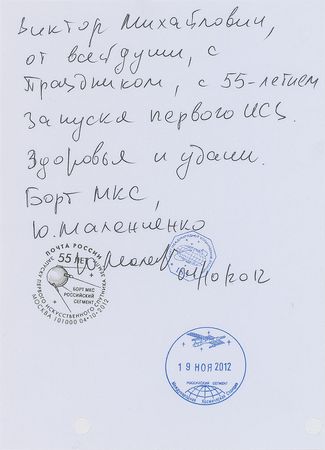 Виктор Михайлович,
от всей души, с
Праздником, с 55-летием
Запуска первого ИСЗ.
Здоровья и удачи.
Борт МКС,
Ю. Маленченко
04/10/2012
ПОЧТА РОССИИ
55 ЛЕТ
ЗАПУСКУ ПЕРВОГО ИСКУССТВЕННОГО СПУТНИКА ЗЕМЛИ
БОРТ МКС
РОССИЙСКИЙ
СЕГМЕНТ
МОСКВА 101000 04-10-2012
19 НОЯ 2012
РОССИЙСКИЙ СЕГМЕНТ
Международная Космическая Станция